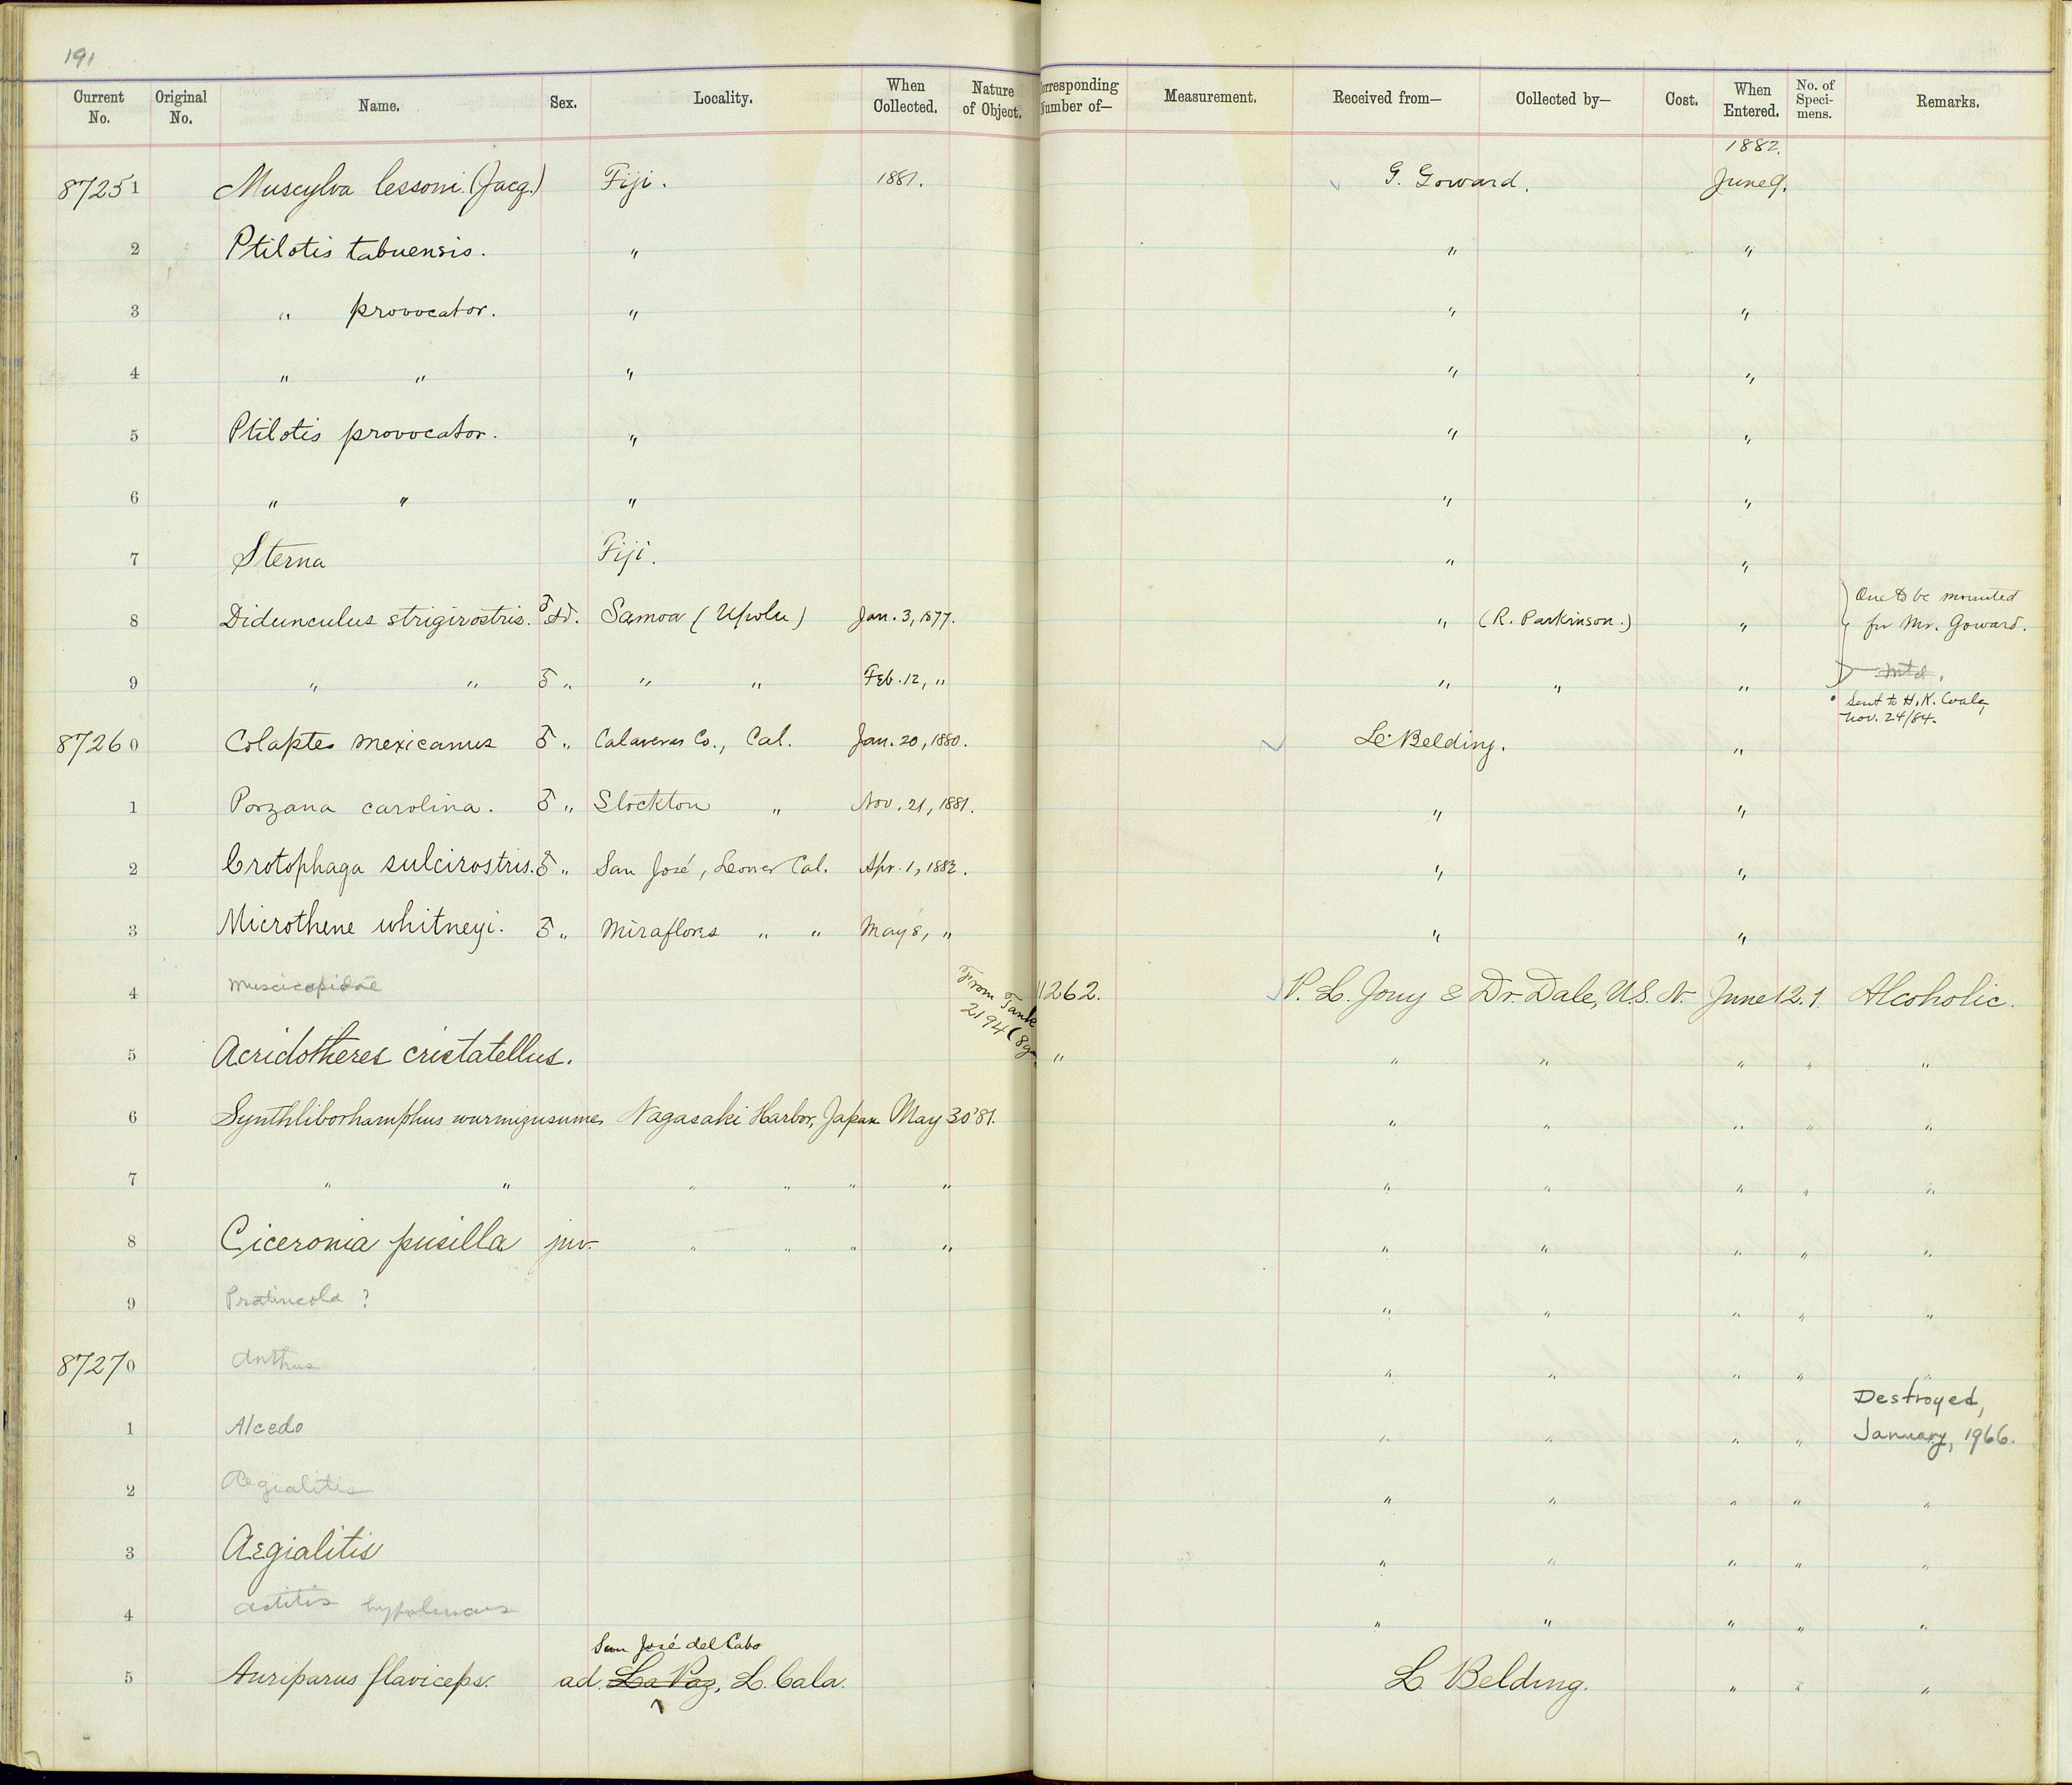 191
Current No. Original No. Name. Sex. Locality. When Collected. Nature of Object. Corresponding Number of— Measurement. Received from— Collected by— Cost. When Entered. No. of Specimens. Remarks.
1882.
87251 Muscylva lessoni. (Jacq.) Fiji. 1881. G. Goward. June 9.
2 Ptilotis tabuensis. " " "
3 " provocator. " " "
4 " " " " "
5 Ptilotis provocator. " " "
6 " " " " "
7 Sterna Fiji. " "
8 Didunculus strigirostris. ♂ ad. Samoa (Upolu) Jan. 3, 1877. " (R. Parkinson.) " One to be mounted for Mr. Goward.
9 " " ♂ " " " Feb. 12, " " " " Mtd.
Sent to H. K. Coale, Nov. 24/84.
87260 Colaptes mexicanus ♂ " Calaveras Co., Cal. Jan. 20, 1880. L. Belding. "
1 Porzana carolina. ♂ " Stockton " Nov. 21, 1881. " "
2 Crotophaga sulcirostris. ♂ " San José, Lower Cal. Apr. 1, 1882. " "
3 Microthene whitneyi. ♂ " Miraflores " " May 8, " " "
4 Muscicapidae From Tank 2194 (8ga 11262. P. L. Jouy & Dr. Dale, U.S.N. June 12. 1. Alcoholic.
5 Acridotheres cristatellus. " " " " " "
6 Synthliborhamphus wurmizusume Nagasaki Harbor, Japan May 30 '81. " " " " "
7 " " " " " " " " " " "
8 Ciceronia pusilla juv. " " " " " " " " "
9 Pratincola ? " " " " "
87270 Anthus " " " " "
1 Alcedo " " " " Destroyed, January, 1966.
2 Aegialitis " " " " "
3 Aegialitis " " " " "
4 Actitis hypoleucos " " " " "
San José del Cabo
5 Auriparus flaviceps. ad. La Paz, L. Cala. L. Belding. " " "